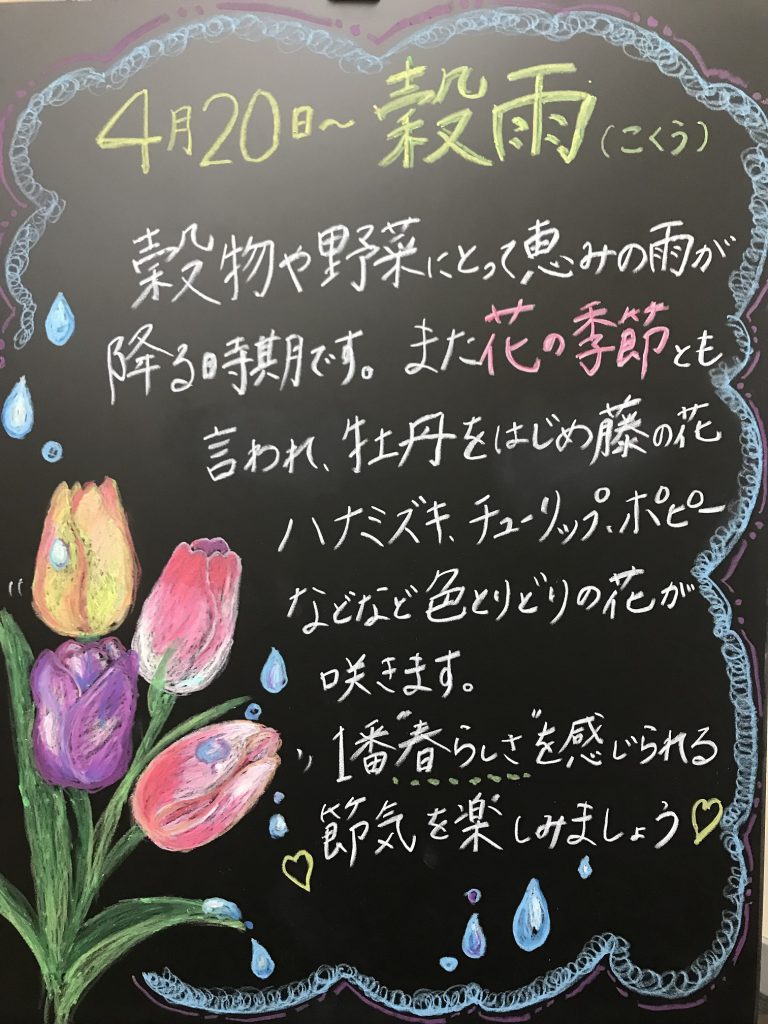 4月20日～ 穀雨(こくう)
穀物や野菜にとって恵みの雨が
降る時期です。また花の季節とも
言われ、牡丹をはじめ藤の花
ハナミズキ、チューリップ、ポピー
などなど色とりどりの花が
咲きます。
1番"春らしさ"を感じられる
節気を楽しみましょう♡